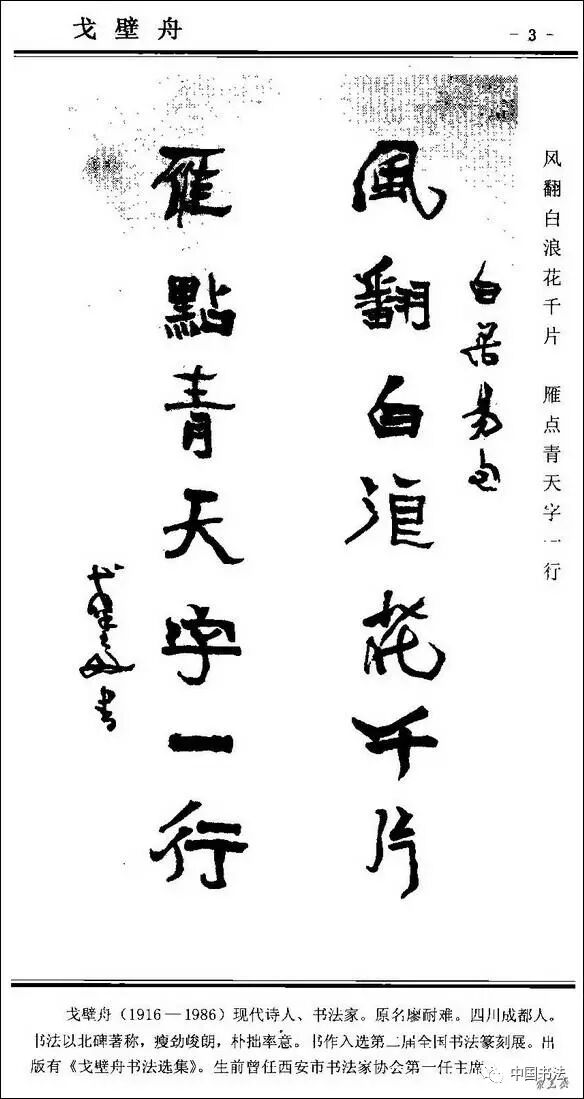 戈壁舟
- 3 -
风翻白浪花千片 雁点青天字一行
白居易句
風翻白浪花千片
雁點青天字一行
戈壁舟书
戈壁舟（1916－1986）现代诗人、书法家。原名廖耐难。四川成都人。
书法以北碑著称，瘦劲峻朗，朴拙率意。书作入选第二届全国书法篆刻展。出
版有《戈壁舟书法选集》。生前曾任西安市书法家协会第一任主席
中国书法